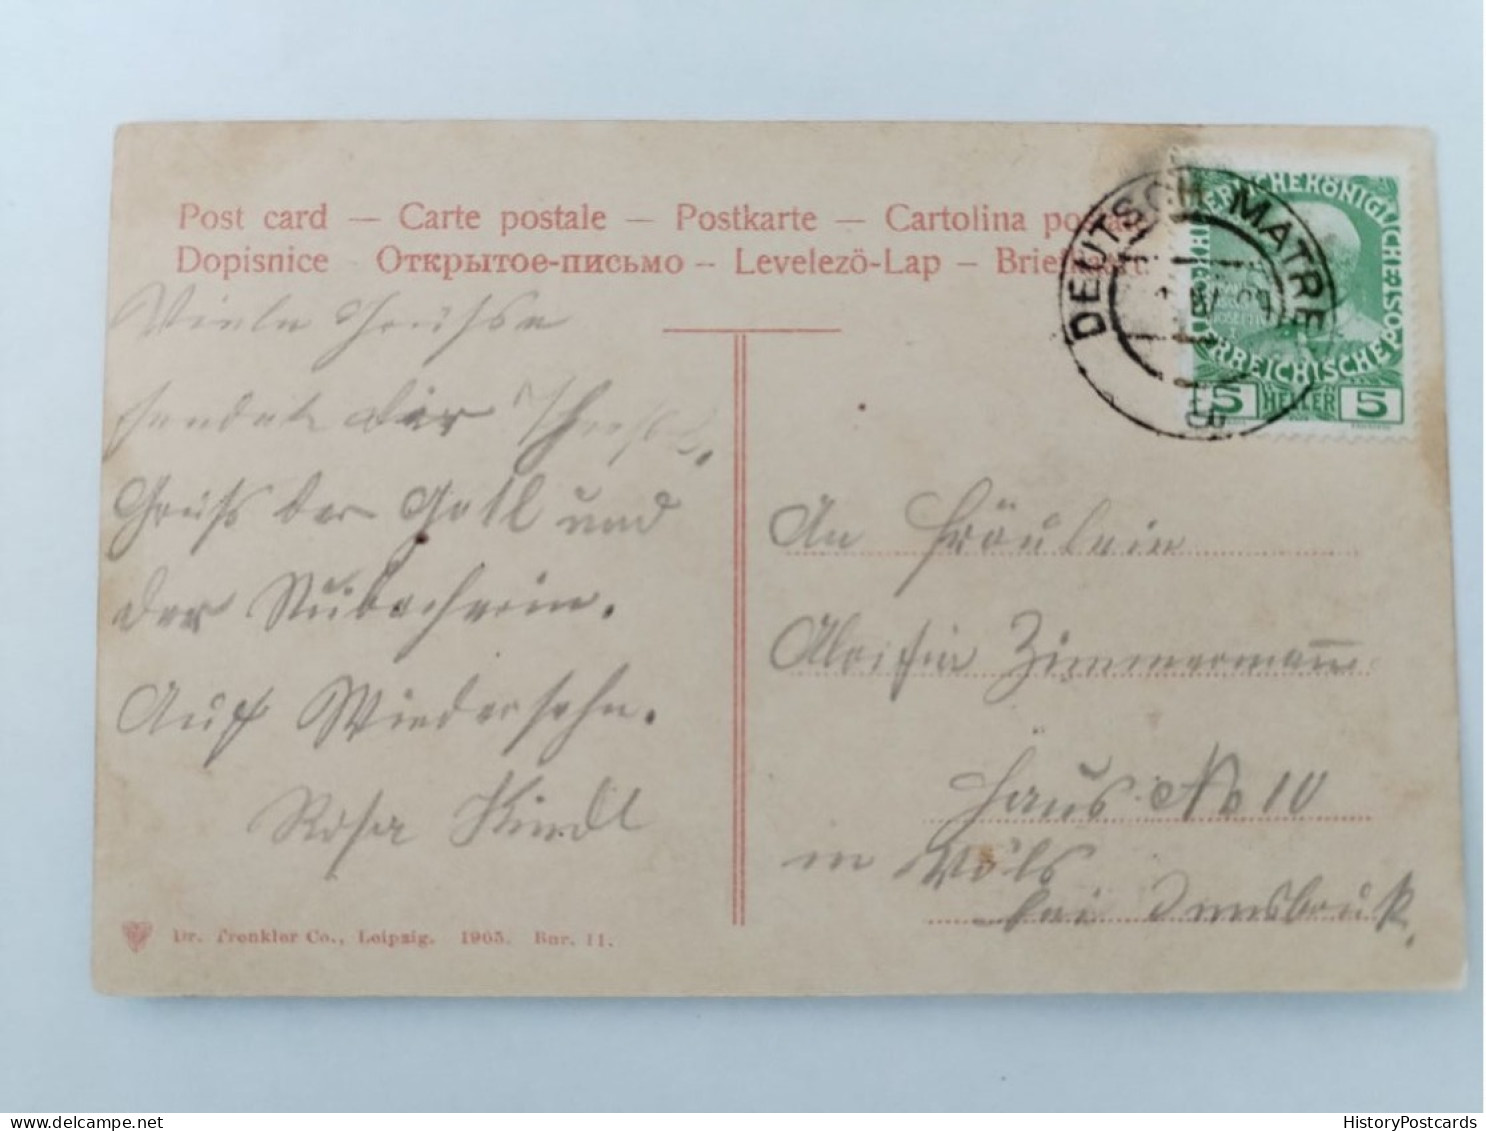 Post card — Carte postale — Postkarte — Cartolina postale
Dopisnice Открытое-письмо – Levelezö-Lap – Briefkaart
DEUTSCH MATREI
KAISERLICHE KÖNIGLICHE ÖSTERREICHISCHE POST
5 HELLER 5
Viele Grüsse
sendet dir
Gruß der Gotl und
der
Auf Wiedersehn.
Rosa Kindl
An Fräulein
Aloisia Zimmermann
Haus No 10
in Völs
bei Innsbruck.
Dr. Trenkler Co., Leipzig. 1905. Bar. 11.
HistoryPostcards.com